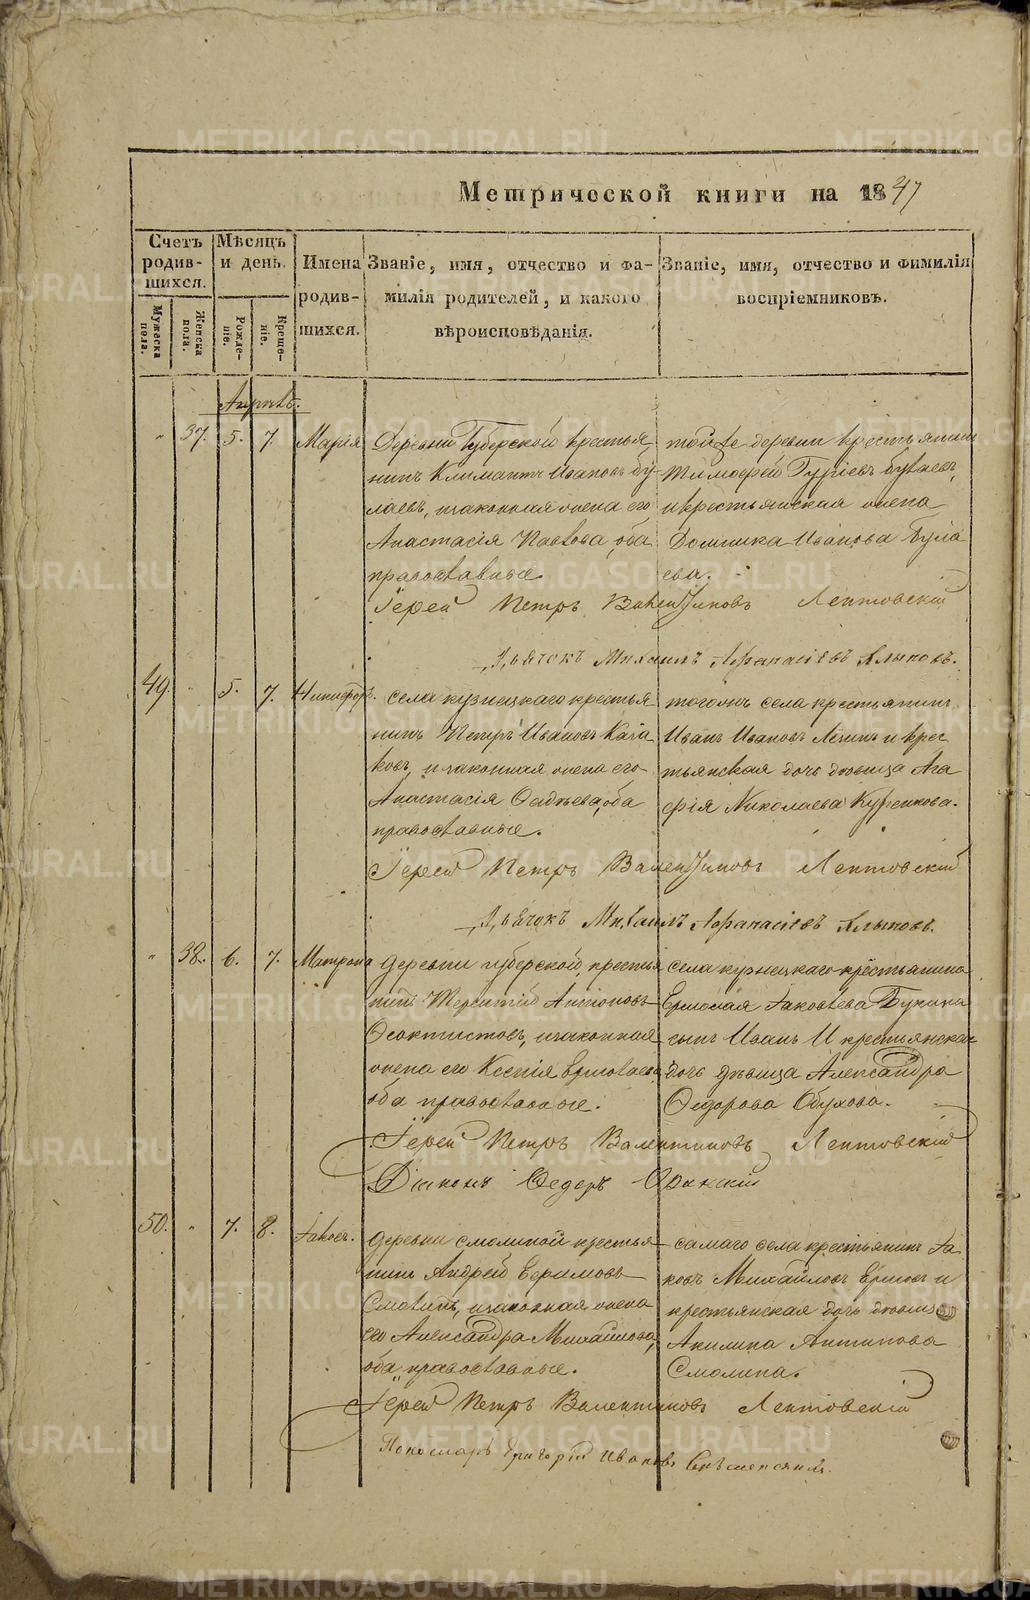 Метрической книги на 1847
Счетъ родившихся.
Мѣсяцъ и день.
Имена родившихся.
Званіе, имя, отчество и фамилія родителей, и какого вѣроисповѣданія.
Званіе, имя, отчество и фимилія воспріемниковъ.
Мужеска пола.
Женска пола.
Рожденіе.
Крещеніе.
Апрѣль.
" 37. 5. 7. Марія
Деревни Губерской крестья-
нинъ Климантъ Ивановъ Бу-
лаевъ, и законная жена его
Анастасія Павлова, оба
православные.
той же деревни крестьянинъ
Тимофей Гуріевъ Булаевъ,
и крестьянская жена
Домника Иванова Була
ева.
Іерей Петръ Валентиновъ Лептовскій
Дьячокъ Михаилъ Афанасіевъ Ялыповъ.
49. " 5. 7. Никифоръ.
села кузнецкаго крестья
нинъ Петръ Ивановъ
ковъ, и законная жена его
Анастасія оба
православные.
тогожъ села крестьянинъ
Иванъ Ивановъ и крес
тьянская дочь дѣвица Ага
фія Николаева Куренкова.
Іерей Петръ Валентиновъ Лептовскій
Дьячокъ Михаилъ Афанасіевъ Ялыповъ.
" 38. 6. 7. Матрона
деревни губерской, крестья
нинъ Терентій Антоновъ
Феоктистовъ, и законная
жена его Ксенія
оба православные.
села кузнецкаго крестьянина
Ермолая Іаковлева Букина
сынъ Иванъ И крестьянская
дочь дѣвица Александра
Федорова Обухова.
Іерей Петръ Валентиновъ Лептовскій
Діаконъ Федоръ
50. " 7. 8. Іаковъ.
деревни смолиной крестья
нинъ Андрей Ефимовъ
Смолинъ, и законная жена
его Александра Михайлова,
оба православные.
самаго села крестьянинъ Іа
ковъ Михайловъ и
крестьянская дочь дѣвица
Акилина Антипова
Смолина.
Іерей Петръ Валентиновъ Лептовскій
Пономарь Григорій Ивановъ
METRIKI.GASO-URAL.RU